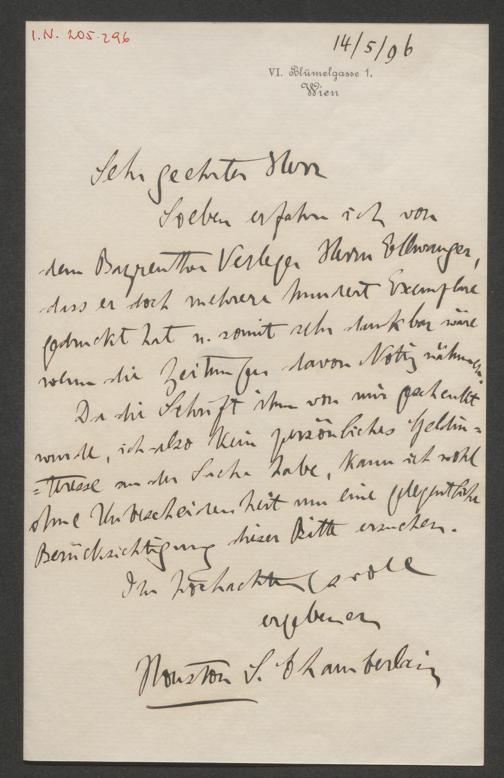 I.N. 205.296
14/5/96
VI. Blümelgasse 1.
Wien
Sehr geehrter Herr
Soeben erfahre ich von
dem Bayreuther Verleger Herrn Ellwanger,
dass er doch mehrere hundert Exemplare
gedruckt hat u. somit sehr dankbar wäre
wenn die Zeitungen davon Notiz nähmen.
Da die Schrift ihm von mir geschenkt
wurde, ich also kein persönliches Geldin=
=teresse an der Sache habe, kann ich wohl
ohne Unbescheidenheit um eine gelegentliche
Berücksichtigung dieser Bitte ersuchen.
Ihr hochachtungsvoll
ergebener
Houston S. Chamberlain